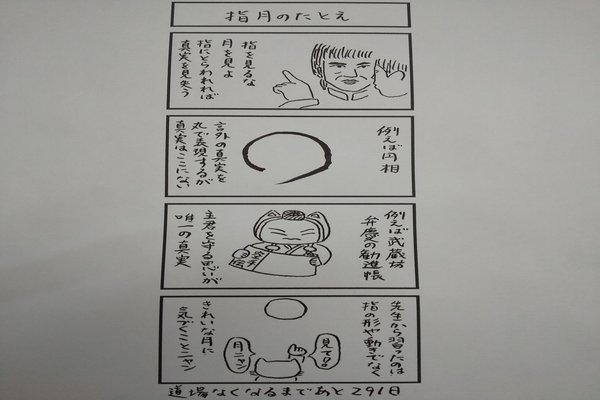 指月のたとえ
指を見るな
月を見よ
指にとらわれれば
真実を見失う
例えば円相
言外の真実を
丸で表現するが
真実はここにない
例えば武蔵坊
弁慶の勧進帳
主君を守る思いが
唯一の真実
先生から習ったのは
指の形や動きでなく
見てロ。
月ニャン
きれいな月に
気づくことニャン
道場なくなるまであと291日